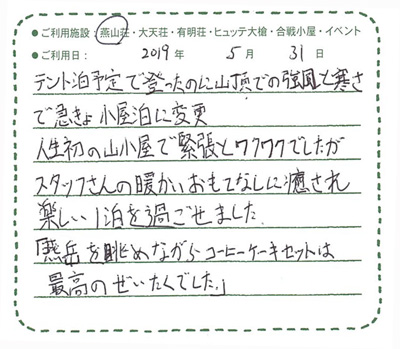 ●ご利用施設：燕山荘・大天荘・有明荘・ヒュッテ大槍・合戦小屋・イベント
●ご利用日： 2019 年 5 月 31 日
テント泊予定で登ったのに山頂での強風と寒さ
で急きょ小屋泊に変更
人生初の山小屋で緊張とワクワクでしたが
スタッフさんの暖かいおもてなしに癒され
楽しい1泊を過ごせました.
燕岳を眺めながらコーヒーケーキセットは
最高のぜいたくでした。」